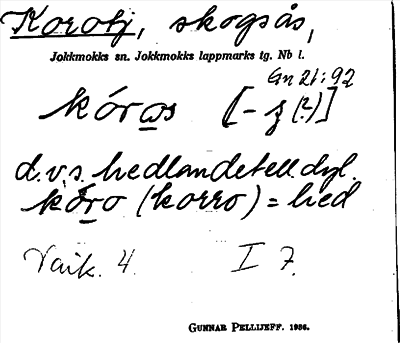 Korotj, skogsås,
Jokkmokks sn. Jokkmokks lappmarks tg. Nb l.
Gn 21:92
kóros [-z (?)]
d.v.s. hedlandet ell. dyl.
kóro (korro) = hed
Vaik. 4. I 7.
GUNNAR PELLIJEFF. 1956.